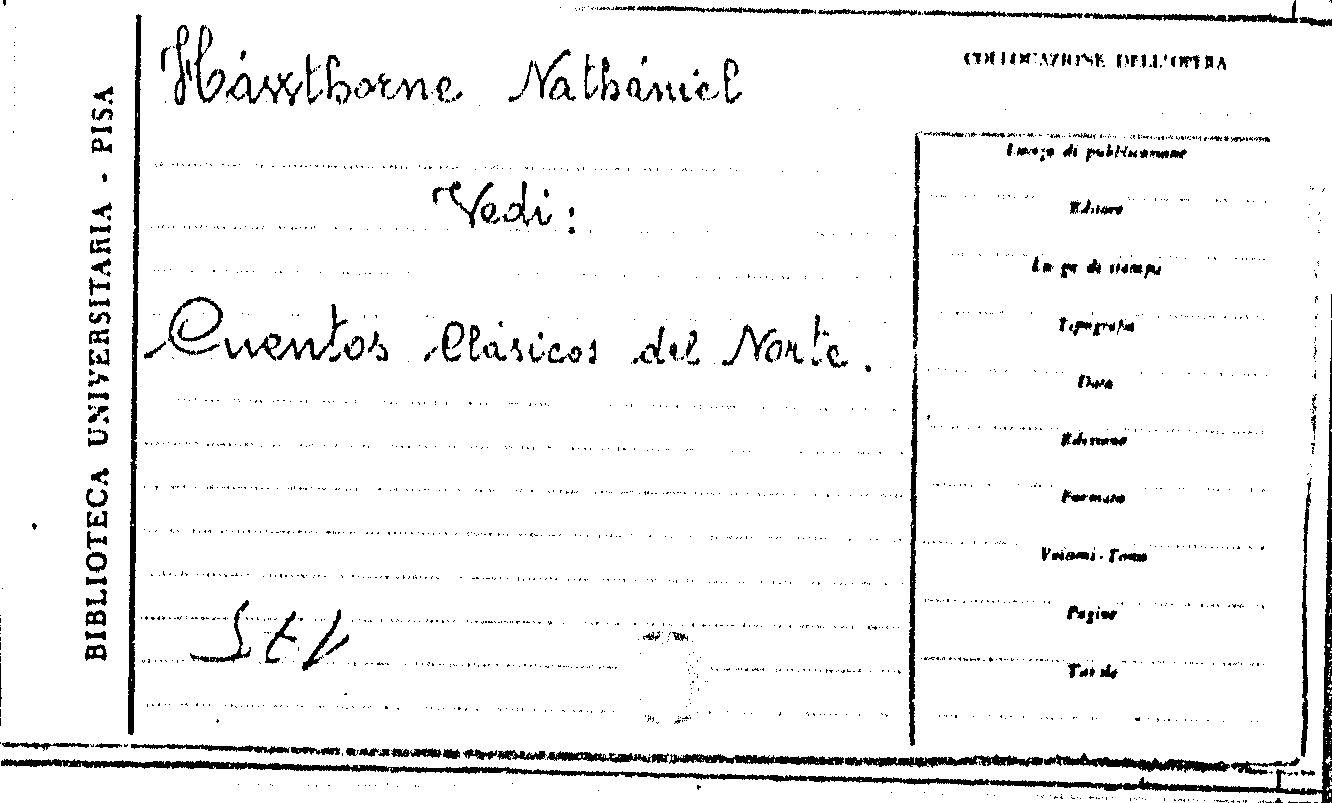 BIBLIOTECA UNIVERSITARIA - PISA
Hawthorne Nathaniel
Vedi:
Cuentos Clásicos del Norte.
COLLOCAZIONE DELL'OPERA
Luogo di pubblicazione
Editore
Luogo di stampa
Tipografia
Data
Edizione
Formato
Volumi - Tomo
Pagine
Tavole